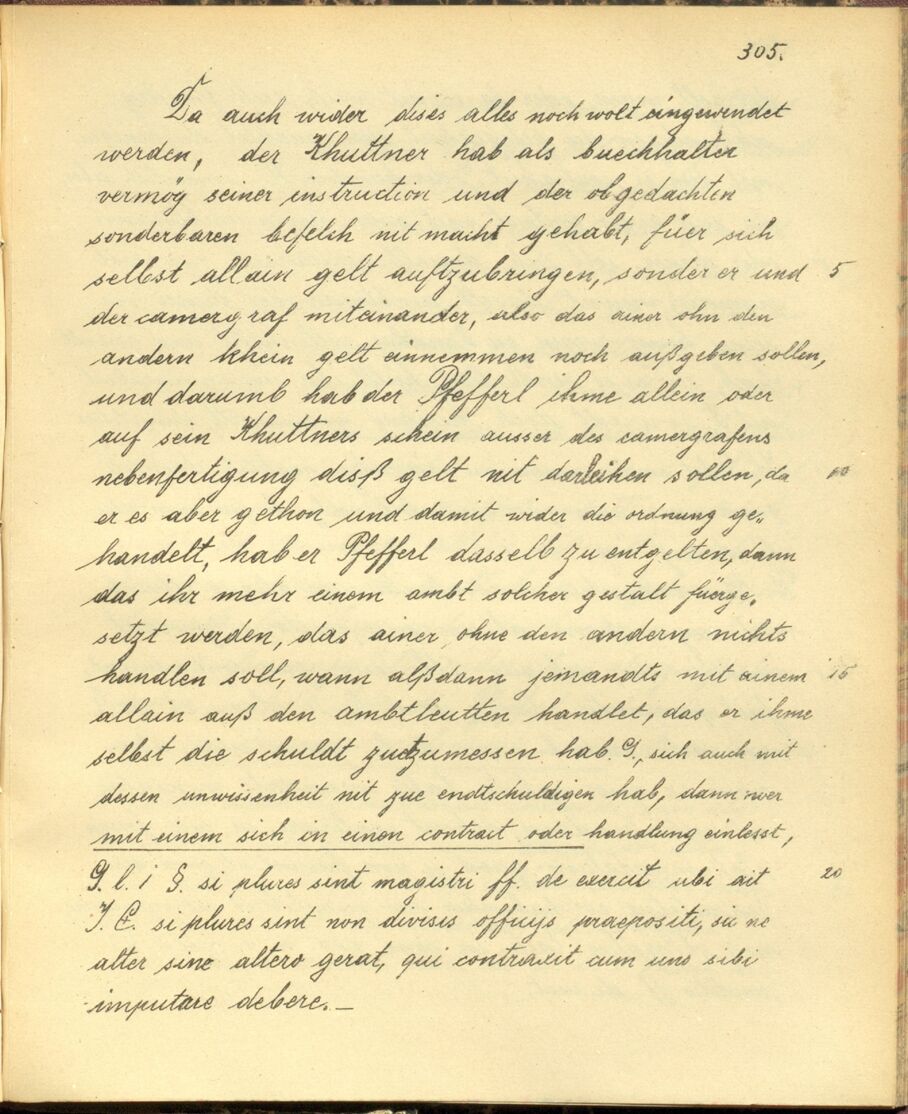 305.
Da auch wider dises alles noch wolt eingewendet
werden, der Khuttner hab als buechhalter
vermög seiner instruction und der obgedachten
sonderbaren befelch nit macht gehabt, füer sich
selbst allain gelt auftzubringen, sonder er und 5
der camergraf miteinander, also das ainer ohn den
andern khein gelt einnemmen noch außgeben sollen,
und darumb hab der Pfefferl ihme allein oder
auf sein Khuttners schein ausser des camergrafens
nebenfertigung diß gelt nit darleihen sollen, da 10
er es aber gethon und damit wider die ordnung ge„
handelt, hab er Pfefferl dasselb zu entgelten, dann
das ihr mehr einem ambt solcher gestalt füerge„
setzt werden, das ainer ohne den andern nichts
handlen soll, wann alßdann jemandts mit ainem 15
allain auß den ambtleutten handlet, das er ihme
selbst die schuldt zuetzumessen hab. G., sich auch mit
dessen unwissenheit nit zue endtschuldigen hab, dann wer
mit einem sich in einen contract oder handlung einlesst,
G. l. i §. si plures sint magistri ff. de exercit ubi ait 20
J. C. si plures sint non divisis officijs praepositi, sic ne
alter sine altero gerat, qui contraxit cum uno sibi
imputare debere. _